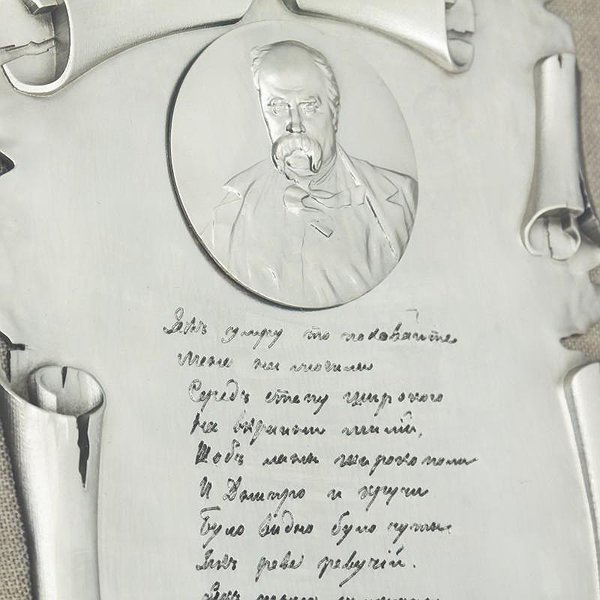 Якъ умру то поховайте
Мене на могили
Середъ степу широкого
На Вкраини милій,
Щобъ ланы широкополи
И Днипро и кручи
Було видно було чути
Якъ реве ревучій.
Якъ